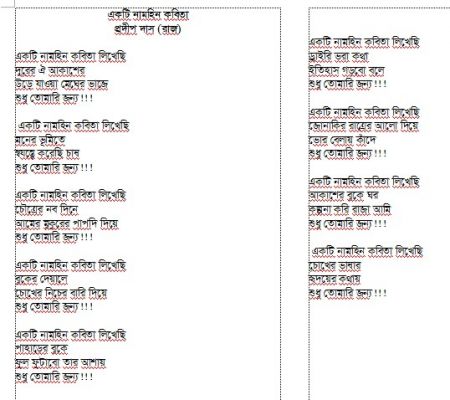 একটি নামহিন কবিতা
প্রদীপ দাস (রাজ)
একটি নামহিন কবিতা লিখেছি
দূরের ঐ আকাশের
উড়ে যাওয়া মেঘের ভাজে
শুধু তোমারি জন্য !!!
একটি নামহিন কবিতা লিখেছি
মনের ভূমিতে
স্বযত্নে করেছি চাষ
শুধু তোমারি জন্য !!!
একটি নামহিন কবিতা লিখেছি
চৌত্রের নব দিনে
আমের মুকুরের পাপদি দিয়ে
শুধু তোমারি জন্য !!!
একটি নামহিন কবিতা লিখেছি
বুকের দেয়ালে
চোখের নিচের বারি দিয়ে
শুধু তোমারি জন্য !!!
একটি নামহিন কবিতা লিখেছি
পাহাড়ের বুকে
ফুল ফুটাবো তার আশায়
শুধু তোমারি জন্য !!!
একটি নামহিন কবিতা লিখেছি
ড্রাইরি ভরা কথা
ইতিহাস গড়বো বলে
শুধু তোমারি জন্য !!!
একটি নামহিন কবিতা লিখেছি
জোনাকির রাত্রের আলো দিয়ে
ভোর বেলায় কাঁদে
শুধু তোমারি জন্য !!!
একটি নামহিন কবিতা লিখেছি
আকাশের বুকে ঘর
কল্পনা করি রাজা আমি
শুধু তোমারি জন্য !!!
একটি নামহিন কবিতা লিখেছি
চোখের ভাষার
হৃদয়ের কথায়
শুধু তোমারি জন্য !!!